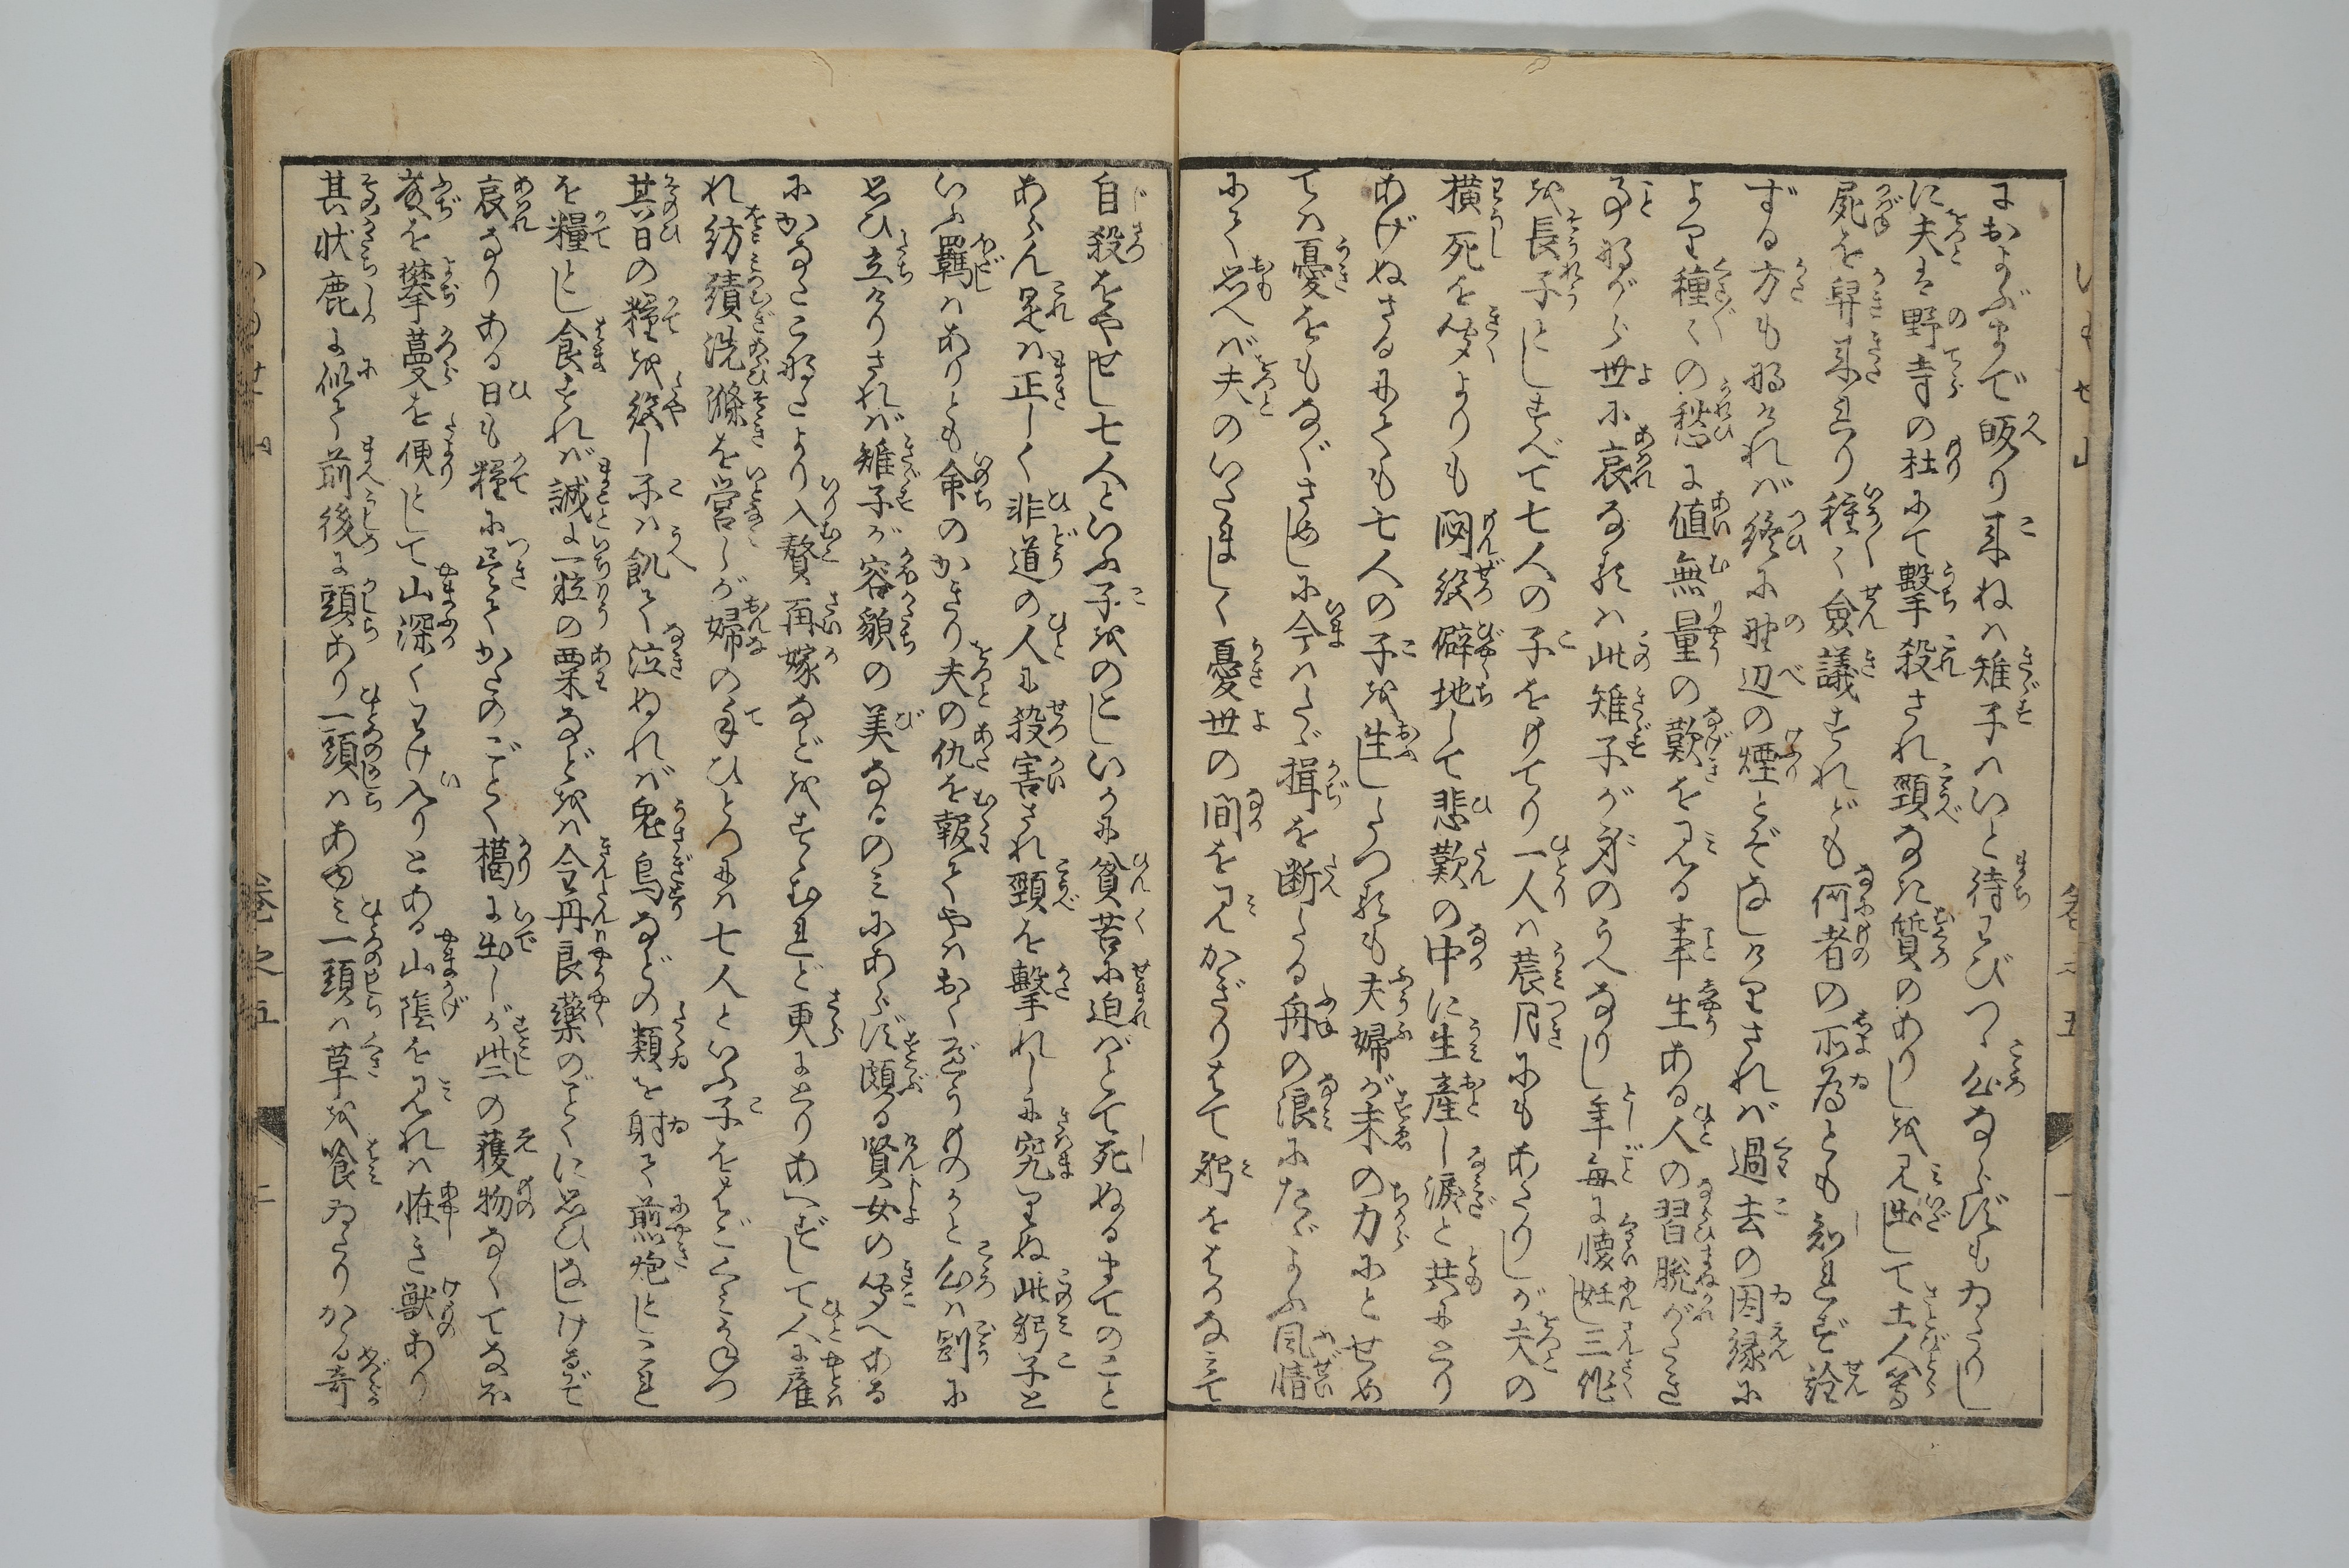 におよぶまで皈り来ねは雉子はいと待わびつゝ心ならずもゐたりし
に夫は野寺の杜にて撃殺され頸なき質のありしを見出して土人等
屍を舁来れり種々僉議すれども何者の所為とも知れず詮
ずる方も那ければ終に野辺の煙とぞなしけりされば過去の因縁に
より種々の愁に値無量の歎を見る事生ある人の習脱がたき
事ながら世に哀なるは此雉子が身のうへなりし年毎に懐妊し三保
を長子としすべて七人の子をもてり一人は蓐月にもあたりしが夫の
横死を聞よりも悶絶僻地して悲歎の中に生産し涙と共にとり
あげぬさるにても七人の子を生したつるも夫婦が未の力にとせめ
ては憂をもなぐさめしに今はたゞ揖を断たる舟の浪にたゞよふ風情
にて思へば夫のいたましく憂世の間を見かぎりはて躬をはかなみて
自殺をやせし七人といふ子をのこしいかに貧苦に迫ばとて死ぬるまでのこと
あらん是は正しく非道の人に殺害され頸を撃れしに究りぬ此躬子と
いふ羈はありとも命のかぎり夫の仇を報でやはおくべうものかと心は剛に
思ひ立けりされば雉子が容貌の美なるのみにあらず頗る賢女の聞へある
にかなたこ那たより入贅再嫁などをすゝむれど更にとりあへずして人に雇
れ紡績洗滌を営しが婦の手ひとつには七人といふ子をはごくみかねつ
其日の糧を絶し子は飢て泣ぬれば兎鳥などの類を射て煎炮としこれ
を糧とし食すれば誠に一粒の粟などをは金丹良薬のごとくに思ひなしけるぞ
哀なりある日も糧に尽てかたのごとく𤢖に出しが些の獲物なくてなほ
𦾔を攀蔓を便として山深くわけ入りとある山蔭を見れは怪き獣あり
其状鹿に似て前後に頭あり一頭はあゆみ一頭は草を喰ゐたりかゝる奇
巻之五